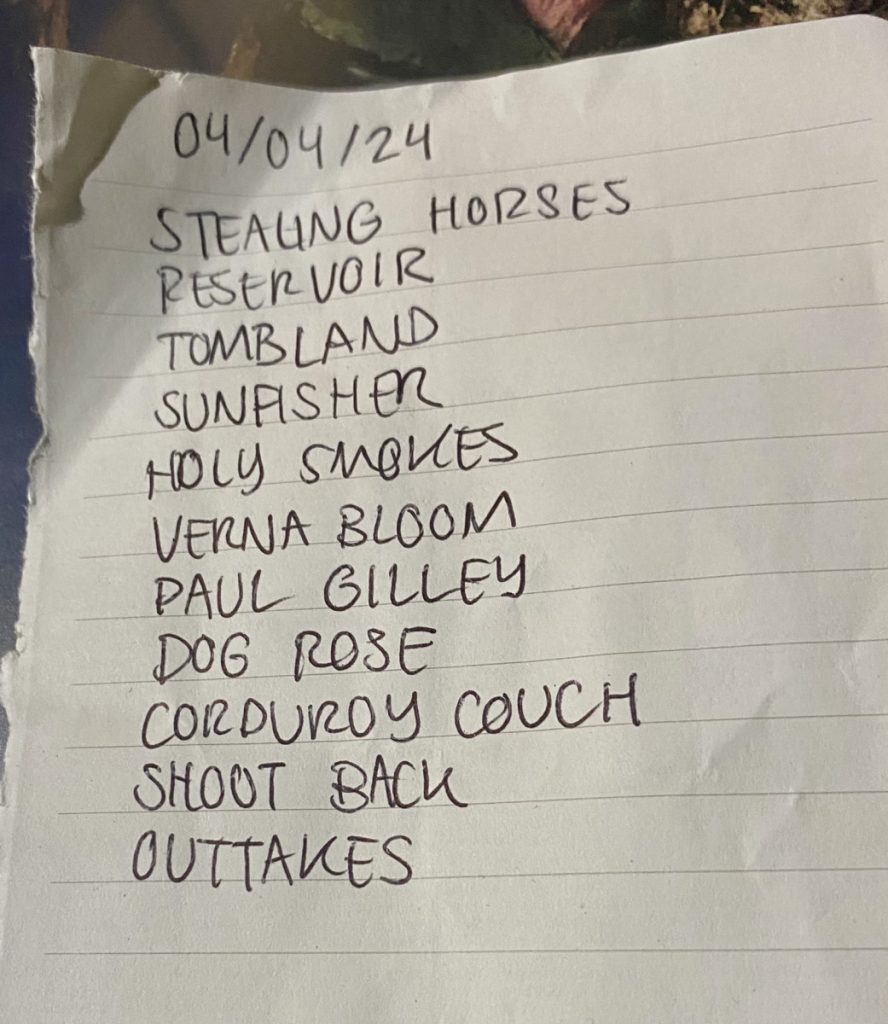 04/04/24
STEALING HORSES
RESERVOIR
TOMBLAND
SUNFISHER
HOLY SMOKES
VERNA BLOOM
PAUL GILLEY
DOG ROSE
CORDUROY COUCH
SHOOT BACK
OUTTAKES